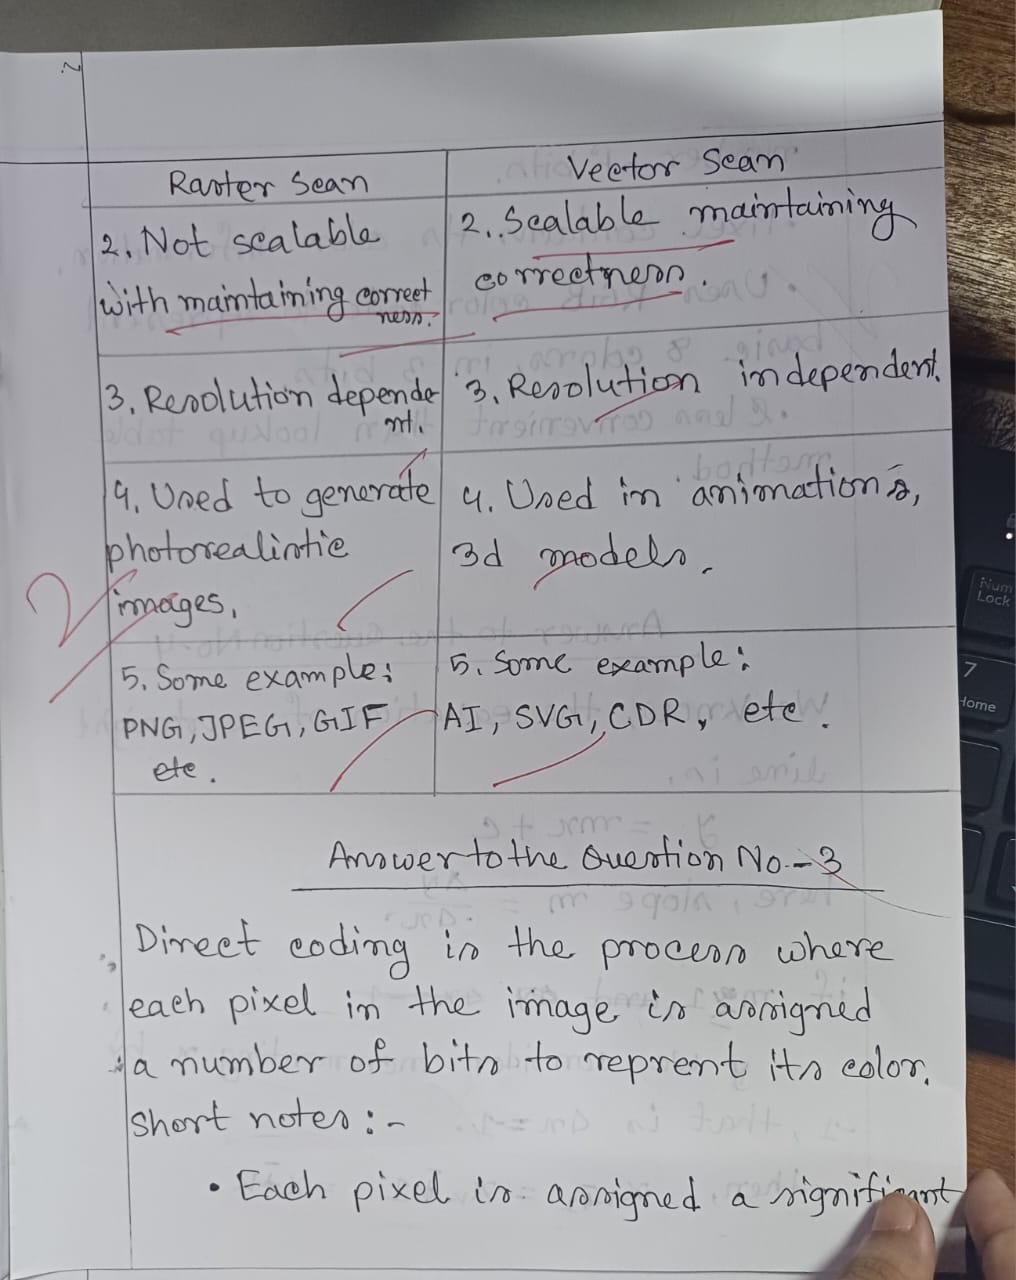 Raster Scan
Vector Scan
2. Not scalable
with maintaining correct
ness.
2. Scalable maintaining
correctness.
3. Resolution depende
nt.
3. Resolution independent.
4. Used to generate
photorealistic
images.
4. Used in animations,
3d models.
5. Some example:
PNG, JPEG, GIF
etc.
5. Some example:
AI, SVG, CDR, etc.
2
Answer to the Question No.-3
Direct coding is the process where
each pixel in the image is assigned
a number of bits to reprent its color.
Short notes:-
• Each pixel is assigned a significant
Num
Lock
7
Home